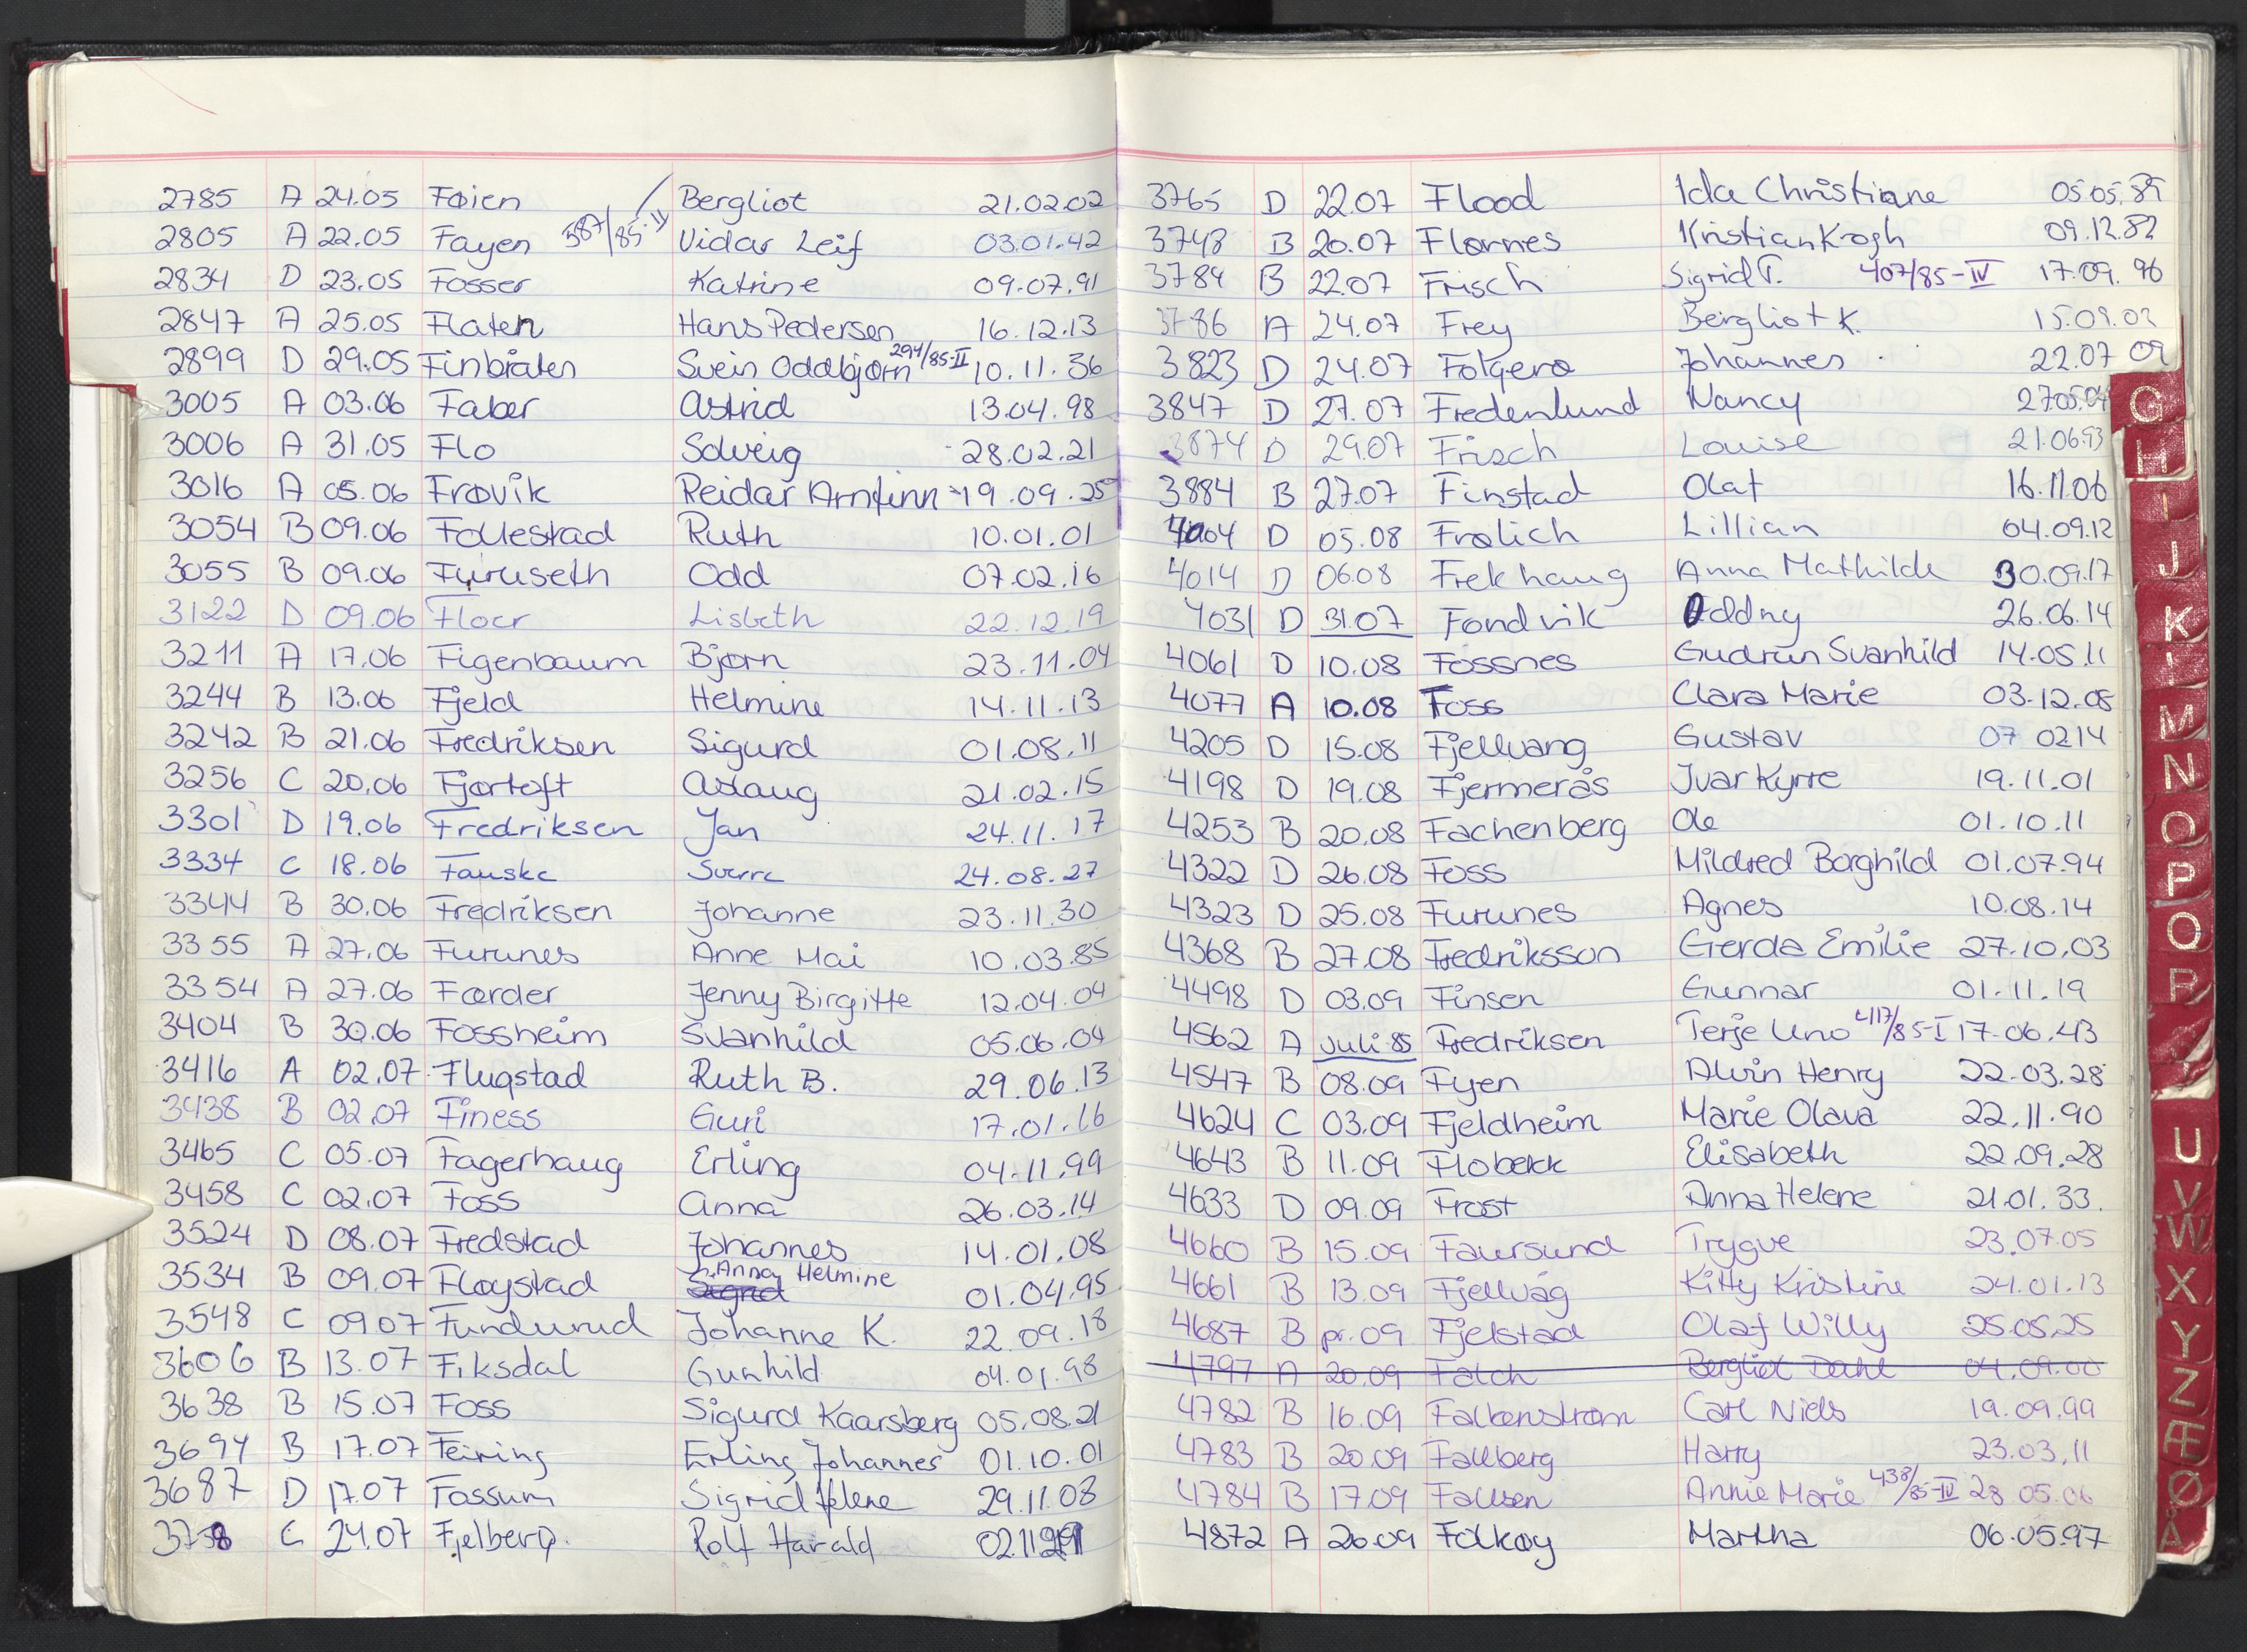 2785 A 24.05 Føien Bergliot 21.02.02
2805 A 22.05 Fayen 387/85-II Vidar Leif 03.01.42
2834 D 23.05 Fosser Katrine 09.07.91
2847 A 25.05 Flaten Hans Pedersen 16.12.13
2899 D 29.05 Finbråten Svein Oddbjørn 294/85-II 10.11.36
3005 A 03.06 Faber Astrid 13.04.98
3006 A 31.05 Flo Solveig 28.02.21
3016 A 05.06 Frøvik Reidar Arnfinn 19.09.25
3054 B 09.06 Follestad Ruth 10.01.01
3055 B 09.06 Furuseth Odd 07.02.16
3122 D 09.06 Floer Lisbeth 22.12.19
3211 A 17.06 Figenbaum Bjørn 23.11.04
3244 B 13.06 Fjeld Helmine 14.11.13
3242 B 21.06 Fredriksen Sigurd 01.08.11
3256 C 20.06 Fjørtoft Aslaug 21.02.15
3301 D 19.06 Fredriksen Jan 24.11.17
3334 C 18.06 Fauske Sverre 24.08.27
3344 B 30.06 Fredriksen Johanne 23.11.30
3355 A 27.06 Furunes Anne Mai 10.03.85
3354 A 27.06 Færder Jenny Birgitte 12.04.04
3404 B 30.06 Fossheim Svanhild 05.06.04
3416 A 02.07 Flugstad Ruth B. 29.06.13
3438 B 02.07 Finess Guri 17.01.16
3465 C 05.07 Fagerhaug Erling 04.11.99
3458 C 02.07 Foss Anna 26.03.14
3524 D 08.07 Fredstad Johannes 14.01.08
3534 B 09.07 Fløystad Anna Helmine 01.04.95
3548 C 09.07 Fundurud Johanne K. 22.09.18
3606 B 13.07 Fiksdal Gunhild 04.01.98
3638 B 15.07 Foss Sigurd Kaarsberg 05.08.21
3694 B 17.07 Feiring Erling Johannes 01.10.01
3687 D 17.07 Fossum Sigrid Helene 29.11.08
3758 C 24.07 Fjelberg. Rolf Harald
3765 D 22.07 Flood Ida Christiane 05.05.89
3748 B 20.07 Flornes Kristian Krogh 09.12.82
3784 B 22.07 Frisch Sigrid T. 407/85-IV 17.09.96
3786 A 24.07 Frey Bergliot K. 15.09.02
3823 D 24.07 Folgerø Johannes 22.07 09
3847 D 27.07 Fredenlund Nancy 27.05.04
3874 D 29.07 Frisch Louise 21.06.93
3884 B 27.07 Finstad Olaf 16.11.06
4004 D 05.08 Frølich Lillian 04.09.12
4014 D 06.08 Frekhaug Anna Mathilde 30.09.17
4031 D 31.07 Fondvik Oddny 26.06.14
4061 D 10.08 Fossnes Gudrun Svanhild 14.05.11
4077 A 10.08 Foss Clara Marie 03.12.05
4205 D 15.08 Fjellvang Gustav 07 02 14
4198 D 19.08 Fjermerås Ivar Kyrre 19.11.01
4253 B 20.08 Fachenberg Ole 01.10.11
4322 D 26.08 Foss Mildred Borghild 01.07.94
4323 D 25.08 Furunes Agnes 10.08.14
4368 B 27.08 Fredriksson Gerda Emilie 27.10.03
4498 D 03.09 Finsen Gunnar 01.11.19
4562 A Juli 85 Fredriksen Terje Uno 417/85-I 17.06.43
4547 B 08.09 Fyen Alvin Henry 22.03.28
4624 C 03.09 Fjeldheim Marie Olava 22.11.90
4643 B 11.09 Flobekk Elisabeth 22.09.28
4633 D 09.09 Frost Anna Helene 21.01.33.
4660 B 15.09 Faursund Trygve 23.07.05
4661 B 13.09 Fjellvåg Kitty Kristine 24.01.13
4687 B pr.09 Fjelstad Olaf Willy 25.05.25
4797 A 20.09 Falch Bergliot Dahl 04.09.00
4782 B 16.09 Falkenstrøm Carl Niels 19.09.99
4783 B 20.09 Fallberg Harry 23.03.11
4784 B 17.09 Falsen Annie Marie 438/85-IV 28 05.06
4872 A 26.09 Folkøy Martha 06.05.97
G
H
I
J
K
L
M
N
O
P
Q
R
U
V
W
X
Y
Z
Æ
Ø
Å